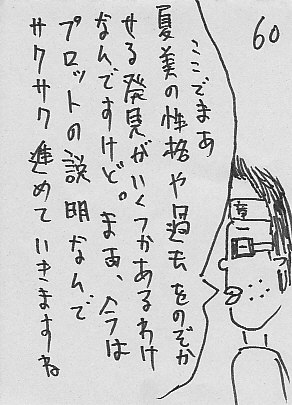 60
ここでまあ
夏美の性格や過去をのぞか
せる発見がいくつかあるわけ
なんですけど。まあ、今は
プロットの説明なんで
サクサク進めていきますね
章一